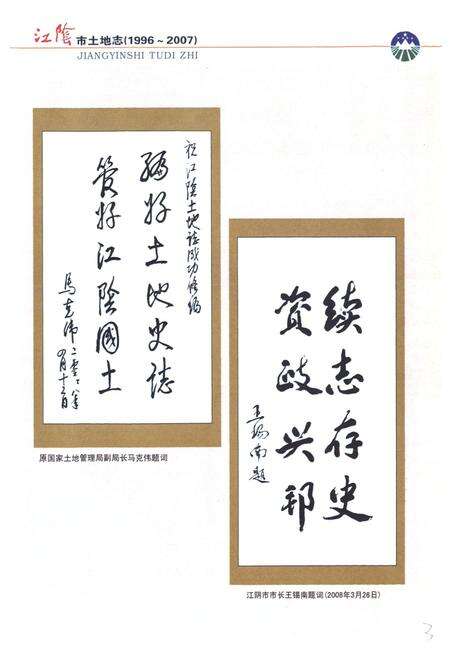 江陰市土地志(1996～2007)
JIANGYINSHI TUDI ZHI
祝江陰土地誌成功修編
編好土地史誌
管好江陰國土
馬克偉二零零八年
四月十三日
原国家土地管理局副局长马克伟题词
续志存史
资政兴邦
王锡南题
江阴市市长王锡南题词(2008年3月26日)
3